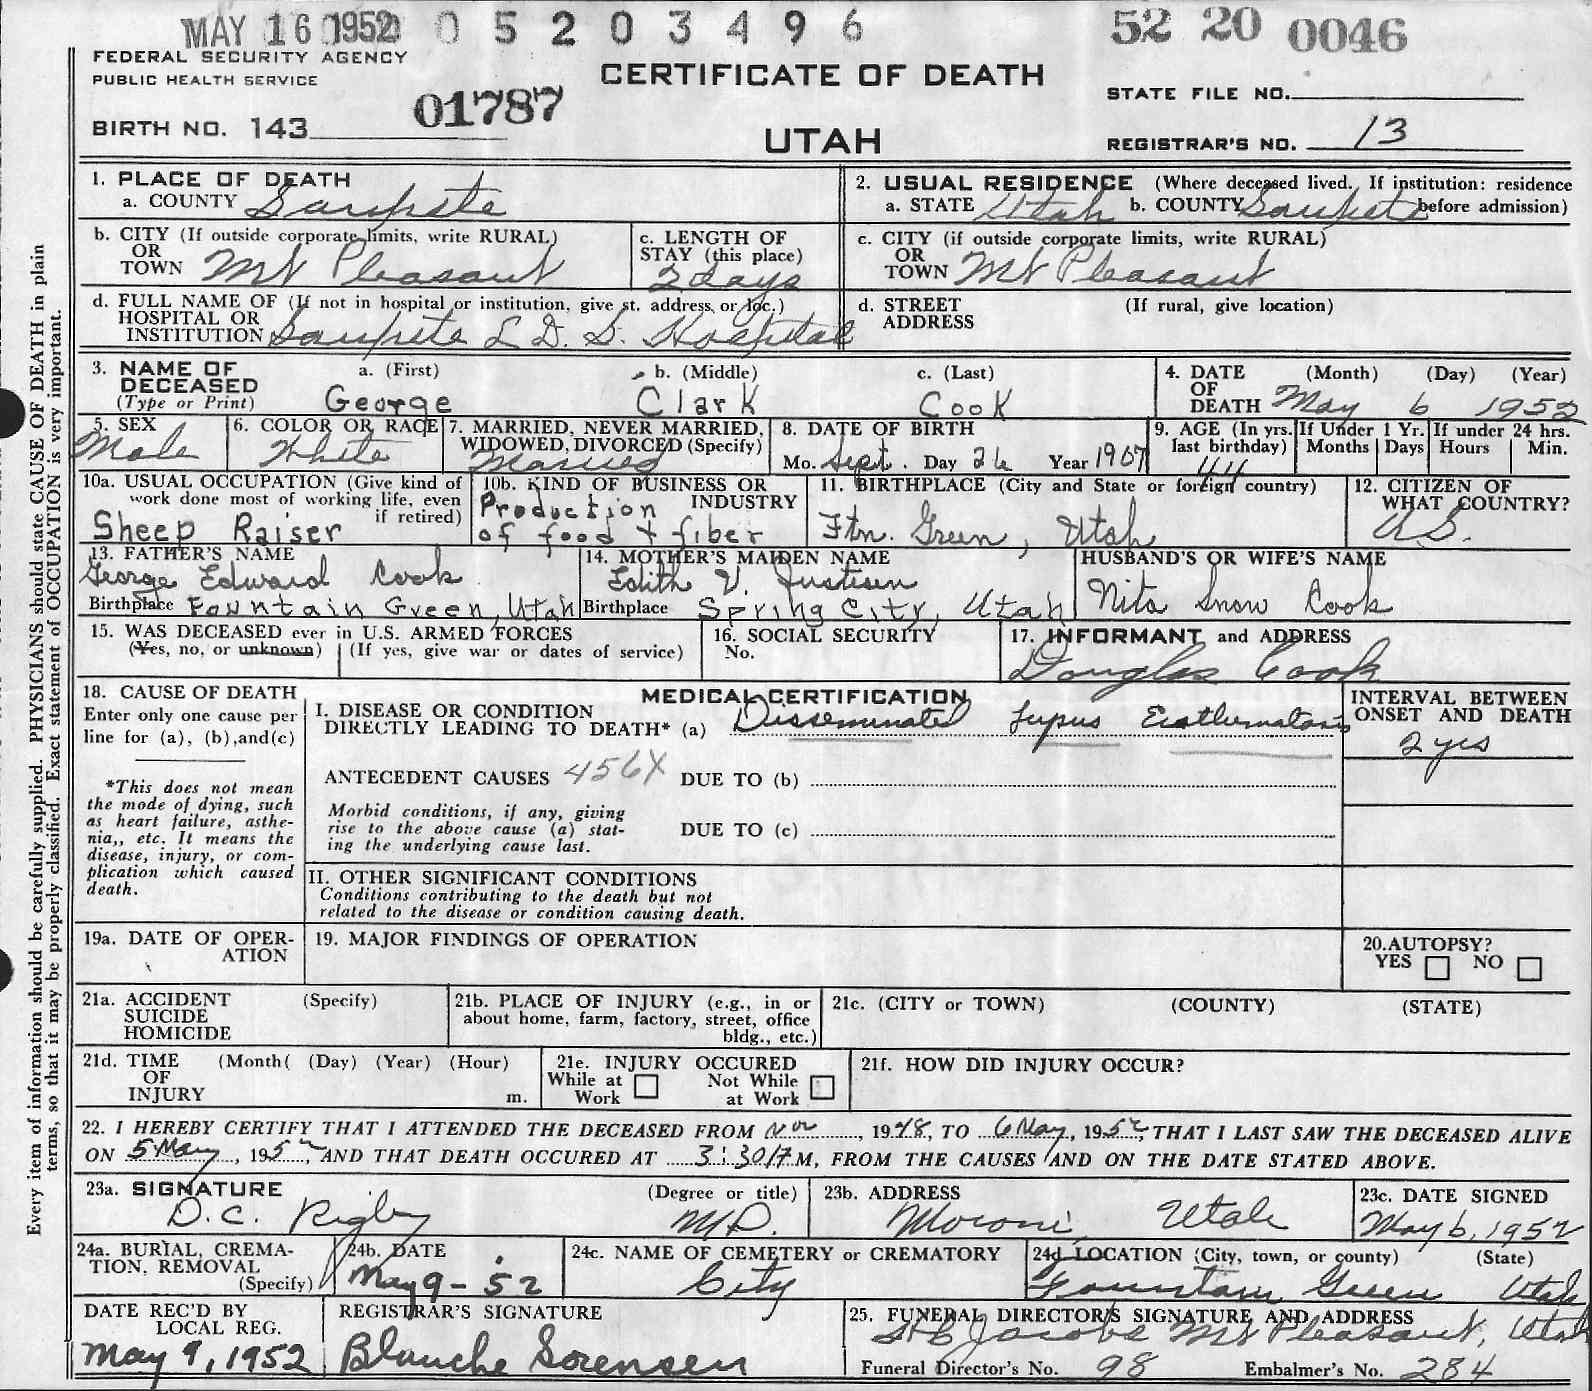 MAY 16 1952 0 5 2 0 3 4 9 6 52 20 0046
FEDERAL SECURITY AGENCY
PUBLIC HEALTH SERVICE
CERTIFICATE OF DEATH
STATE FILE NO.
01787
BIRTH NO. 143
UTAH
REGISTRAR'S NO. 13
Every item of information should be carefully supplied. PHYSICIANS should state CAUSE OF DEATH in plain
terms, so that it may be properly classified. Exact statement of OCCUPATION is very important.
1. PLACE OF DEATH
a. COUNTY Sanpete
2. USUAL RESIDENCE (Where deceased lived. If institution: residence
a. STATE Utah b. COUNTY Sanpete before admission)
b. CITY (If outside corporate limits, write RURAL)
OR
TOWN Mt Pleasant
c. LENGTH OF
STAY (this place)
2 days
c. CITY (if outside corporate limits, write RURAL)
OR
TOWN Mt Pleasant
d. FULL NAME OF (If not in hospital or institution, give st. address or loc.)
HOSPITAL OR
INSTITUTION Sanpete L D. S. Hospital
d. STREET (If rural, give location)
ADDRESS
3. NAME OF a. (First) b. (Middle) c. (Last)
DECEASED
(Type or Print) George Clark Cook
4. DATE (Month) (Day) (Year)
OF
DEATH May 6 1952
5. SEX
Male
6. COLOR OR RACE
White
7. MARRIED, NEVER MARRIED,
WIDOWED, DIVORCED (Specify)
Married
8. DATE OF BIRTH
Mo. Sept. Day 26 Year 1907
9. AGE (In yrs.
last birthday)
44
If Under 1 Yr.
Months Days
If under 24 hrs.
Hours Min.
10a. USUAL OCCUPATION (Give kind of
work done most of working life, even
if retired)
Sheep Raiser
10b. KIND OF BUSINESS OR
INDUSTRY
Production
of food + fiber
11. BIRTHPLACE (City and State or foreign country)
Ftn. Green, Utah
12. CITIZEN OF
WHAT COUNTRY?
U.S.
13. FATHER'S NAME
George Edward Cook
Birthplace Fountain Green, Utah
14. MOTHER'S MAIDEN NAME
Edith V. Justesen
Birthplace Spring City, Utah
HUSBAND'S OR WIFE'S NAME
Nita Snow Cook
15. WAS DECEASED ever in U.S. ARMED FORCES
(Yes, no, or unknown) (If yes, give war or dates of service)
16. SOCIAL SECURITY
No.
17. INFORMANT and ADDRESS
Douglas Cook
18. CAUSE OF DEATH
Enter only one cause per
line for (a), (b), and (c)
*This does not mean
the mode of dying, such
as heart failure, asthe-
nia,, etc. It means the
disease, injury, or com-
plication which caused
death.
MEDICAL CERTIFICATION
I. DISEASE OR CONDITION
DIRECTLY LEADING TO DEATH* (a) Disseminated Lupus
INTERVAL BETWEEN
ONSET AND DEATH
2 yrs
ANTECEDENT CAUSES 456X DUE TO (b)
Morbid conditions, if any, giving
rise to the above cause (a) stat-
ing the underlying cause last.
DUE TO (c)
II. OTHER SIGNIFICANT CONDITIONS
Conditions contributing to the death but not
related to the disease or condition causing death.
19a. DATE OF OPER-
ATION
19. MAJOR FINDINGS OF OPERATION
20. AUTOPSY?
YES NO
21a. ACCIDENT (Specify)
SUICIDE
HOMICIDE
21b. PLACE OF INJURY (e.g., in or
about home, farm, factory, street, office
bldg., etc.)
21c. (CITY or TOWN) (COUNTY) (STATE)
21d. TIME (Month( (Day) (Year) (Hour)
OF
INJURY m.
21e. INJURY OCCURED
While at Work Not While at Work
21f. HOW DID INJURY OCCUR?
22. I HEREBY CERTIFY THAT I ATTENDED THE DECEASED FROM Nov, 1948, TO 6 May, 1952, THAT I LAST SAW THE DECEASED ALIVE
ON 5 May, 1952, AND THAT DEATH OCCURED AT 3:30 M, FROM THE CAUSES AND ON THE DATE STATED ABOVE.
23a. SIGNATURE (Degree or title)
D.C. Rigby M.D.
23b. ADDRESS
Moroni, Utah
23c. DATE SIGNED
May 6, 1952
24a. BURIAL, CREMA-
TION, REMOVAL
(Specify)
24b. DATE
May 9-52
24c. NAME OF CEMETERY or CREMATORY
City
24d. LOCATION (City, town, or county) (State)
Fountain Green Utah
DATE REC'D BY
LOCAL REG.
May 9, 1952
REGISTRAR'S SIGNATURE
Blanche Sorensen
25. FUNERAL DIRECTOR'S SIGNATURE AND ADDRESS
Jacobs Mt Pleasant, Utah
Funeral Director's No. 98 Embalmer's No. 284